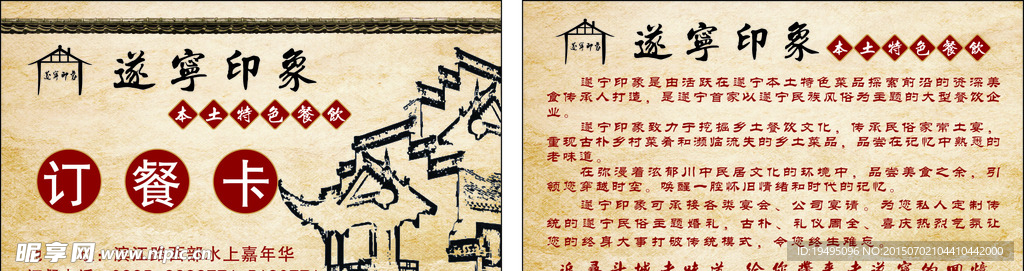 遂宁印象
遂寧印象
本土特色餐饮
订餐卡
滨江路北部水上嘉年华
昵享网 www.nipic.cn
遂宁印象
遂寧印象
本土特色餐饮
遂宁印象是由活跃在遂宁本土特色菜品探索前沿的资深美
食传承人打造，是遂宁首家以遂宁民族风俗为主题的大型餐饮企
业。
遂宁印象致力于挖掘乡土餐饮文化，传承民俗家常土宴，
重现古朴乡村菜肴和濒临流失的乡土菜品，品尝在记忆中熟悉的
老味道。
在弥漫着浓郁川中民居文化的环境中，品尝美食之余，引
领您穿越时空。唤醒一腔怀旧情绪和时代的记忆。
遂宁印象可承接各类宴会、公司宴请。为您私人定制传
统的遂宁民俗主题婚礼，古朴、礼仪周全、喜庆热烈气氛让
您的终身大事打破传统模式，令您终生难忘
ID:19495096 NO:20150702104410442000